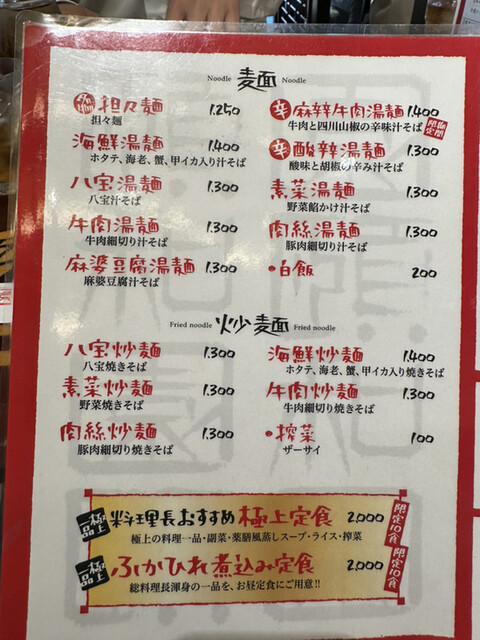 Noodle 麦面 Noodle
担々麺 1.250
担々麺
海鮮湯麺 1.400
ホタテ、海老、蟹、甲イカ入り汁そば
八宝湯麺 1.300
八宝汁そば
牛肉湯麺 1.300
牛肉細切り汁そば
麻婆豆腐湯麺 1.300
麻婆豆腐汁そば
辛 麻辣牛肉湯麺 1.400
牛肉と四川山椒の辛味汁そば
期間限定
辛 酸辣湯麺 1.300
酸味と胡椒の辛み汁そば
素菜湯麺 1.300
野菜餡かけ汁そば
肉絲湯麺 1.300
豚肉細切り汁そば
・白飯 200
Fried noodle 炒麺 Fried noodle
八宝炒麺 1.300
八宝焼きそば
素菜炒麺 1.300
野菜焼きそば
肉絲炒麺 1.300
豚肉細切り焼きそば
海鮮炒麺 1.400
ホタテ、海老、蟹、甲イカ入り焼きそば
牛肉炒麺 1.300
牛肉細切り焼きそば
・搾菜 100
ザーサイ
極上一品 料理長おすすめ 極上定食 2,000 限定10食
極上の料理一品・副菜・薬膳風蒸しスープ・ライス・搾菜
極上一品 ふかひれ煮込み定食 2,000 限定10食
総料理長渾身の一品を、お昼定食にご用意!!